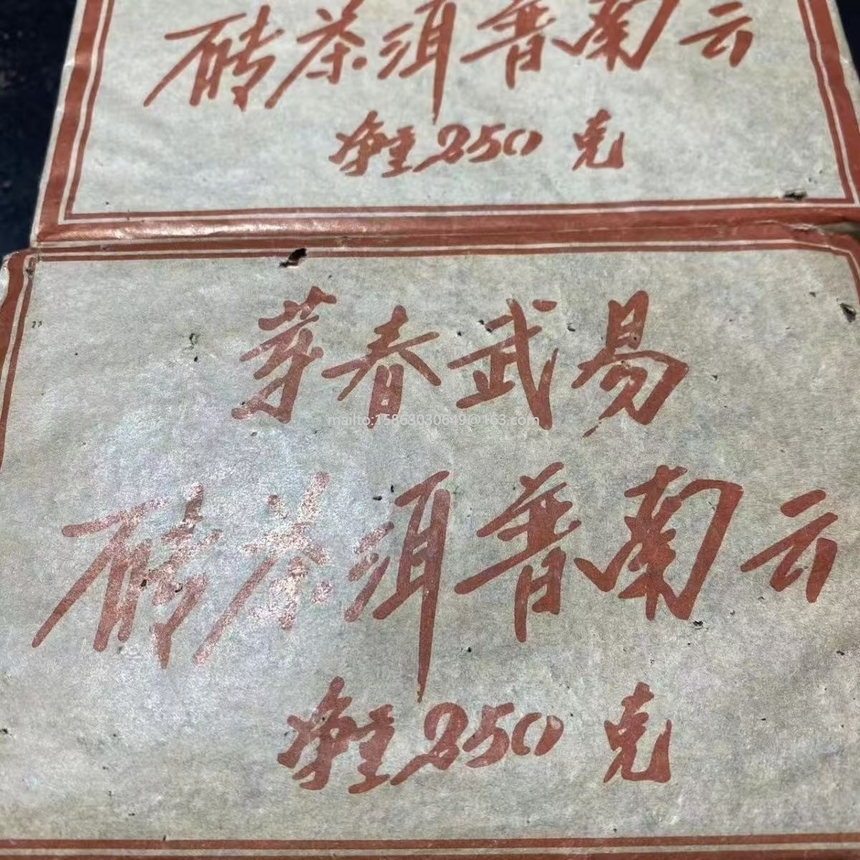 云南普洱茶砖
净重250克
易武春芽
mailto:15863030649@163.com
云南普洱茶砖
净重250克